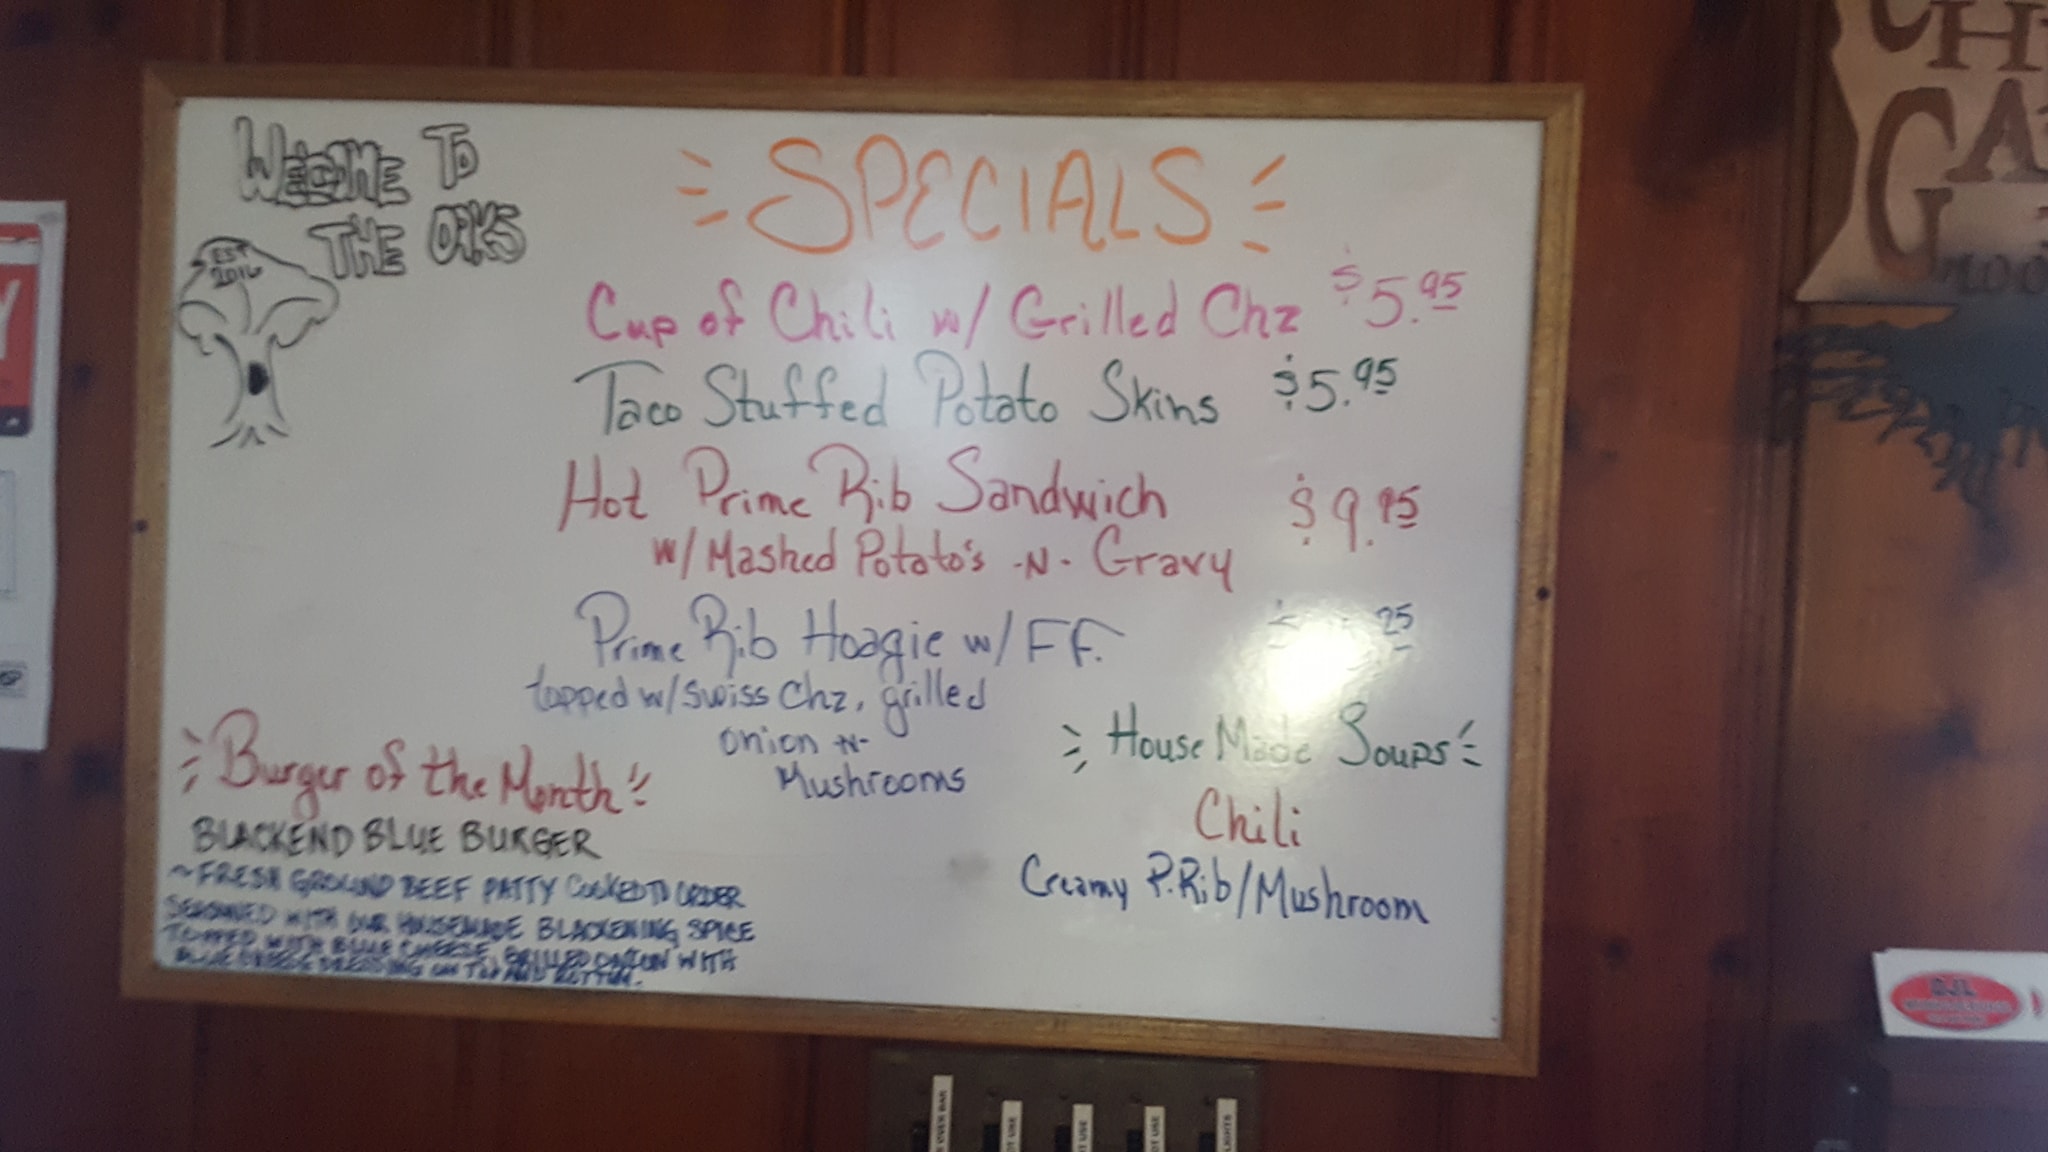 WELCOME TO
THE OAKS
EST
2016
SPECIALS
Cup of Chili w/ Grilled Chz $5.95
Taco Stuffed Potato Skins $5.95
Hot Prime Rib Sandwich $9.95
w/ Mashed Potato's -N- Gravy
Prime Rib Hoagie w/ FF.
topped w/ Swiss Chz, grilled
onion -N-
Mushrooms
Burger of the Month
BLACKEND BLUE BURGER
~FRESH GROUND BEEF PATTY COOKED TO ORDER
SEASONED WITH OUR HOUSEMADE BLACKENING SPICE
TOPPED WITH BLUE CHEESE, GRILLED ONION WITH
BLUE CHEESE DRESSING ON TOP AND BOTTOM.
House Made Soups
Chili
Creamy P.Rib/Mushroom
OVER BAR
LIGHTS
DJL